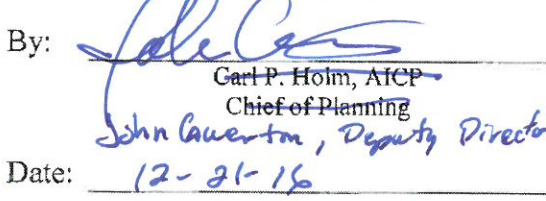 By:
Carl P. Holm, AICP
Chief of Planning
John , Deputy Director
Date: 12-21-16